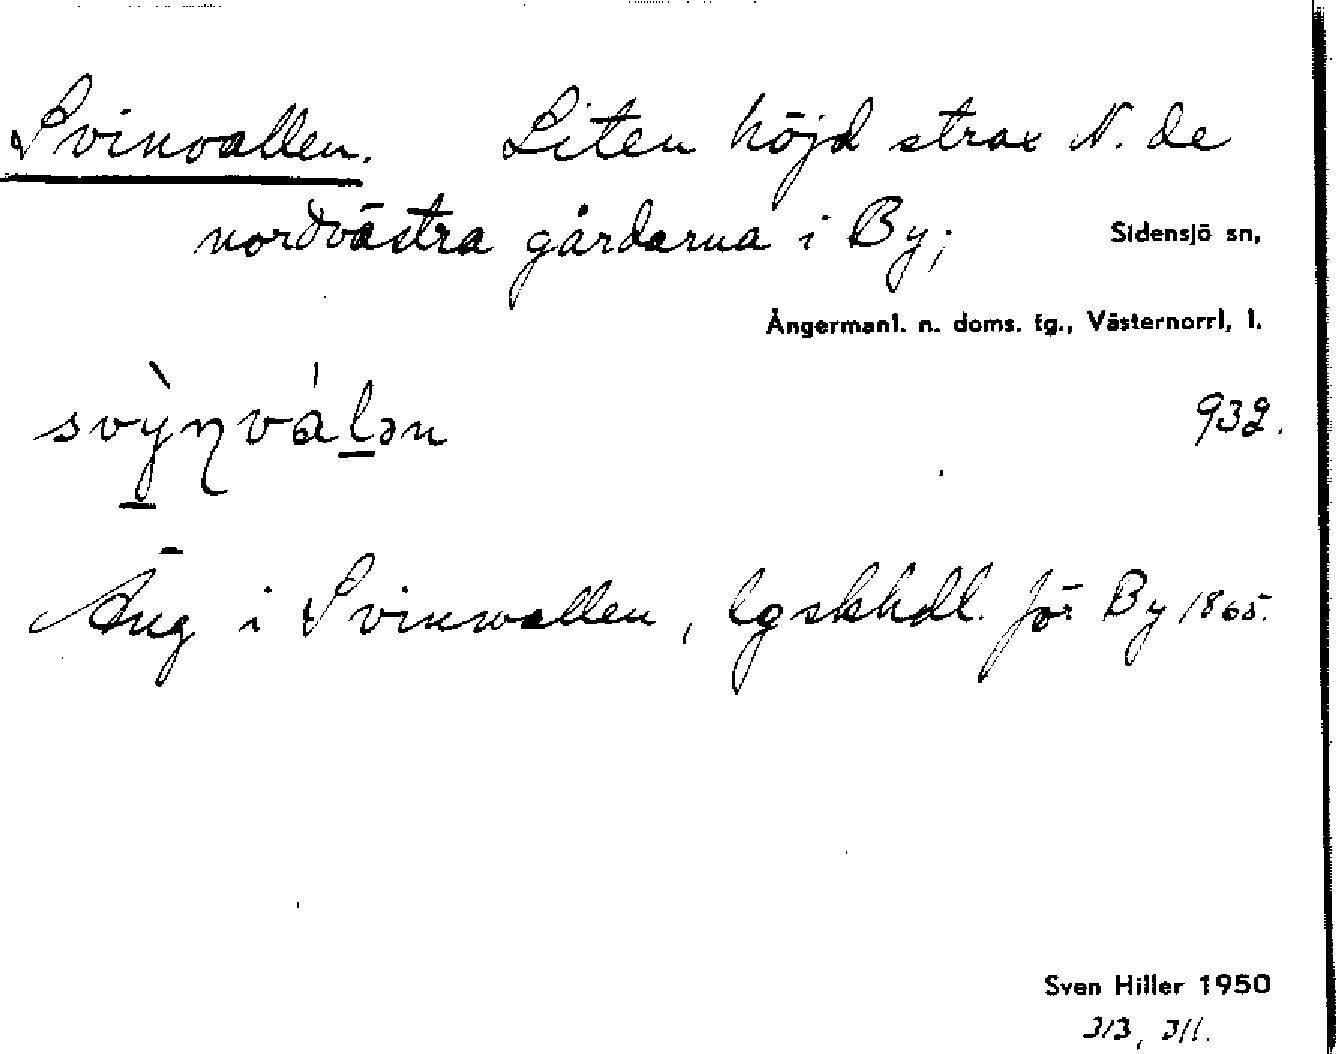 Svinvallen. Liten höjd strax N. de
nordvästra gårdarna i By;
Sidensjö sn,
Ångermanl. n. doms. fg., Västernorrl, l.
932.
Äng i Svinwallen, lgskhdl. för By 1865.
Sven Hiller 1950
J13, J11.